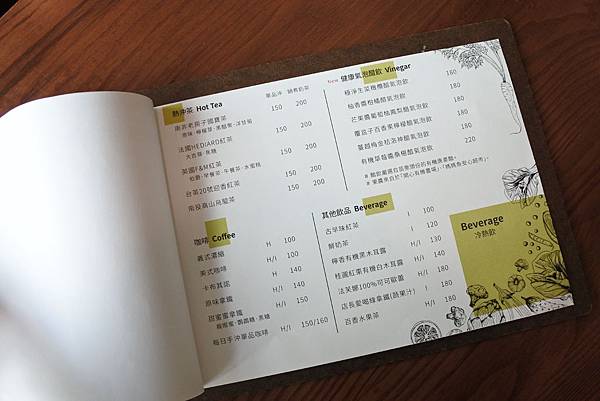 熱沖茶 Hot Tea 單品沖 鍋煮奶茶
南非老房子國寶茶 150 200
法國HEDIARD紅茶 150 200
英國F&M紅茶 150 200
伯爵·早餐茶·午餐茶·水蜜桃
台茶20號迎香紅茶 150 200
南投高山烏龍茶 150
咖啡 Coffee
義式濃縮 H 100
美式咖啡 H/I 100
卡布其諾 H 140
原味拿鐵 H/I 140
甜蜜蜜拿鐵 H/I 150
每日手沖單品咖啡 H/I 150/160
New 健康氣泡醋飲 Vinegar
極淨生菜機釀醋氣泡飲 180
柚香醬柑橘醋氣泡飲 180
芒果醬葡萄柚鳳梨醋氣泡飲 180
覆盆子百香果檸檬醋氣泡飲 180
蔓越梅金枋洛神醋氣泡飲 180
220
其他飲品 Beverage
古早味紅茶 I 100
鮮奶茶 I 120
檸香有機黑木耳露 I 130
桂圓紅棗有機白木耳露 H/I 140
法芙娜100%可可歐蕾 H/I 180
店長愛喝綠拿鐵(蔬果汁) I 180
百香水果茶 H/I 180
Beverage
冷熱飲